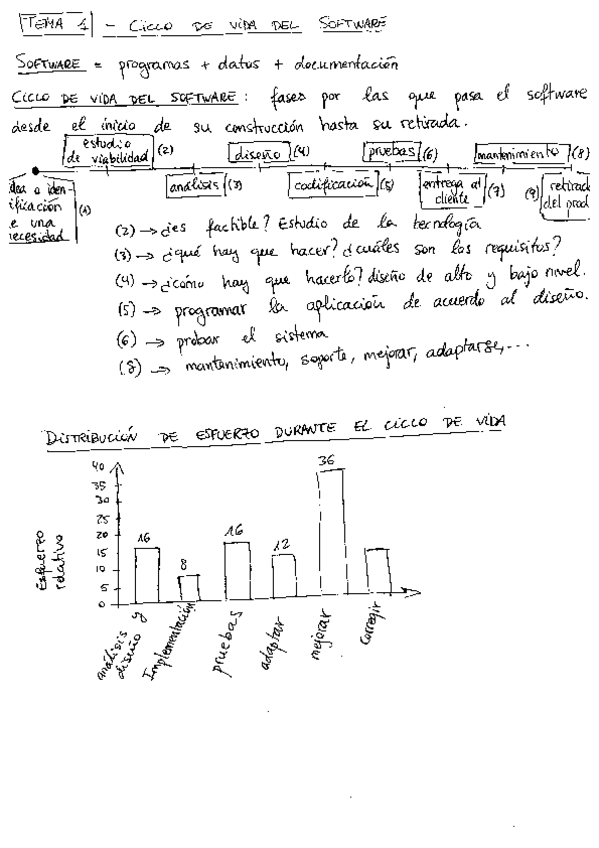 TEMA 1 - CICLO DE VIDA DEL SOFTWARE
SOFTWARE = programas + datos + documentación
CICLO DE VIDA DEL SOFTWARE: fases por las que pasa el software
desde el inicio de su construcción hasta su retirada.
estudio de viabilidad (2)
diseño (4)
pruebas (6)
mantenimiento (8)
idea o iden-
tificación
de una
necesidad (1)
análisis (3)
codificación (5)
entrega al cliente (7)
(9) retirada del prod
(2) → ¿es factible? Estudio de la tecnología
(3) → ¿qué hay que hacer? ¿cuáles son los requisitos?
(4) → ¿cómo hay que hacerlo? diseño de alto y bajo nivel.
(5) → programar la aplicación de acuerdo al diseño.
(6) → probar el sistema
(8) → mantenimiento, soporte, mejorar, adaptarse,...
DISTRIBUCIÓN DE ESFUERZO DURANTE EL CICLO DE VIDA
Esfuerzo relativo
40
35
30
25
20
15
10
5
0
16
8
16
12
36
análisis y diseño
Implementación
pruebas
adaptar
mejorar
corregir